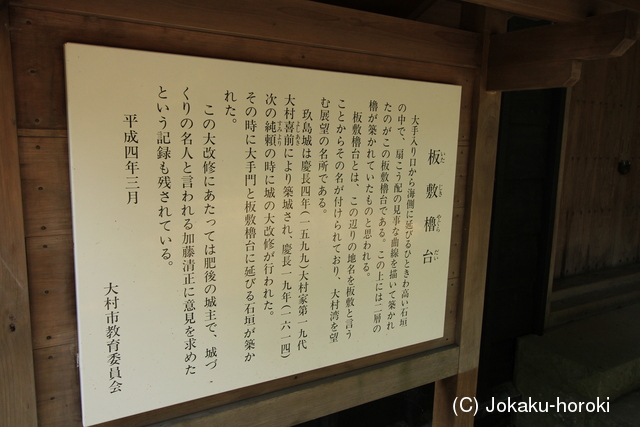 板敷櫓台
いた じき やぐら だい
大手入り口から海側に延びるひときわ高い石垣
の中で、扇こう配の見事な曲線を描いて築かれ
たのがこの板敷櫓台である。この上には二層の
櫓が築かれていたものと思われる。
板敷櫓台とは、この辺りの地名を板敷と言う
ことからその名が付けられており、大村湾を望
む展望の名所である。
玖島城は慶長四年(一五九九)大村家第一九代
大村喜前により築城され、慶長一九年(一六一四)
よしあき
次の純頼の時に城の大改修が行われた。
すみより
その時に大手門と板敷櫓台に延びる石垣が築か
れた。
この大改修にあたっては肥後の城主で、城づ
くりの名人と言われる加藤清正に意見を求めた
という記録も残されている。
平成四年三月
大村市教育委員会
(C) Jokaku-horoki